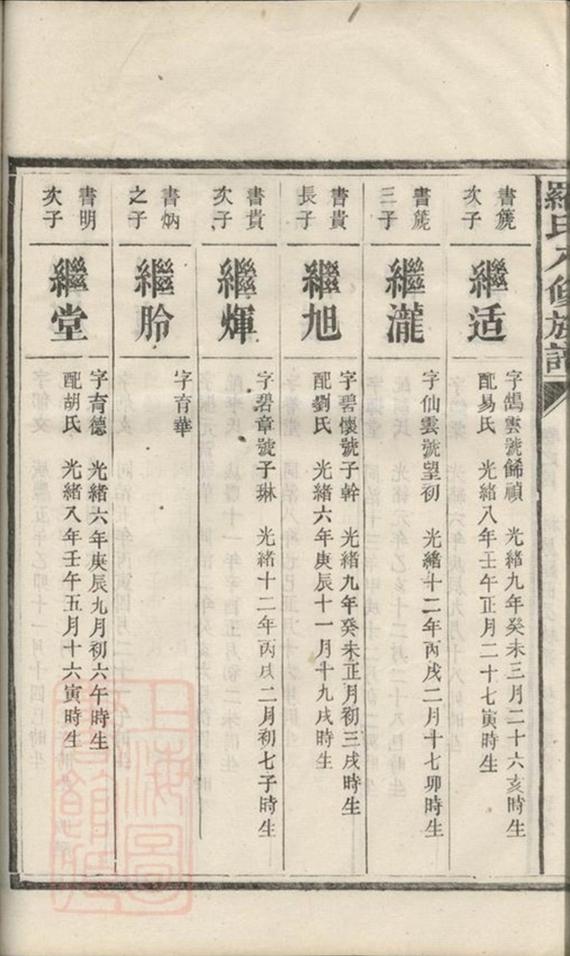 羅氏八修族譜
書篪
次子
繼适
字鵠雲號
光緒九年癸未三月二十六亥時生
配易氏 光緒八年壬午正月二十七寅時生
書篪
三子
繼瀧
字仙雲號望初 光緒十二年丙戌二月十七卯時生
書貴
長子
繼旭
字碧懷號子幹 光緒九年癸未正月初三戌時生
配劉氏 光緒六年庚辰十一月十九戌時生
書貴
次子
繼煇
字碧章號子琳 光緒十二年丙戌二月初七子時生
書炳
之子
繼朎
字育華
書明
次子
繼堂
字育德 光緒六年庚辰九月初六午時生
配胡氏 光緒八年壬午五月十六寅時生